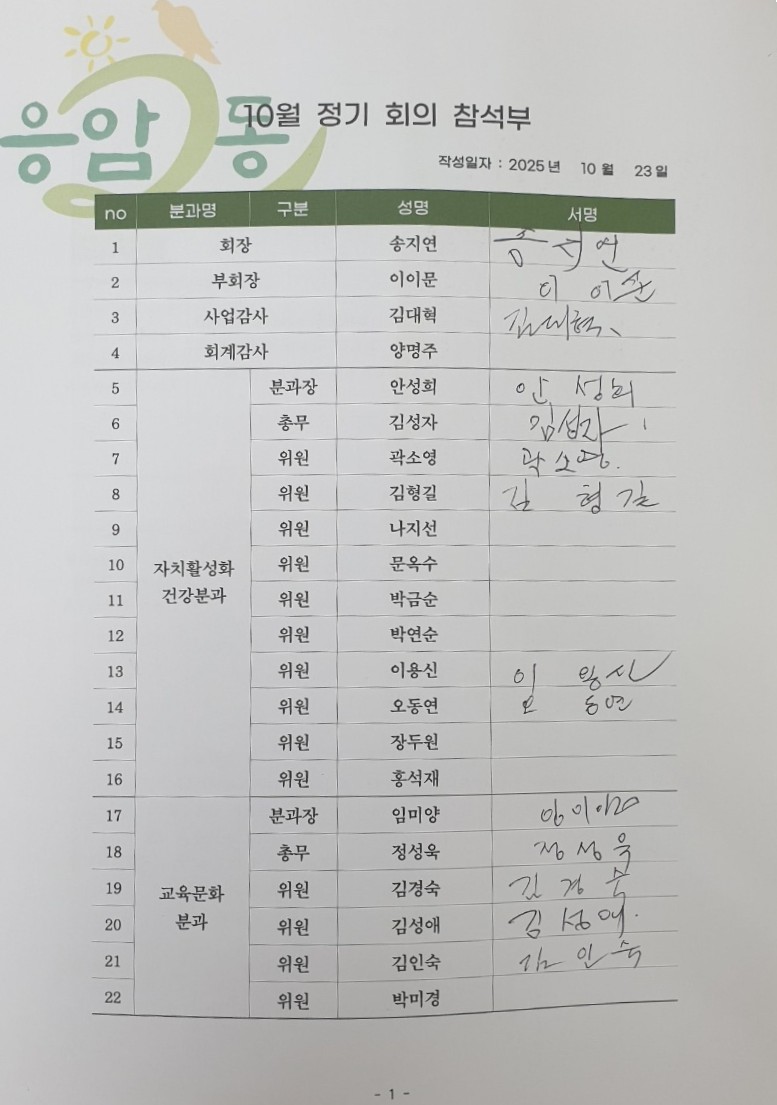 응암 동
10월 정기 회의 참석부
작성일자 : 2025년 10월 23일
no 분과명 구분 성명 서명
1 회장 송지연 송지연
2 부회장 이이문 이이문
3 사업감사 김대혁 김대혁
4 회계감사 양명주
5 분과장 안성희 안성희
6 총무 김성자 김성자
7 위원 곽소영 곽소영.
8 위원 김형길 김형길
9 위원 나지선
10 위원 문옥수
자치활성화
건강분과
11 위원 박금순
12 위원 박연순
13 위원 이용신 이용신
14 위원 오동연 오동연
15 위원 장두원
16 위원 홍석재
17 분과장 임미양
18 총무 정성욱 정성욱
19 위원 김경숙 김경숙
교육문화
분과
20 위원 김성애 김성애.
21 위원 김인숙 김인숙
22 위원 박미경
- 1 -